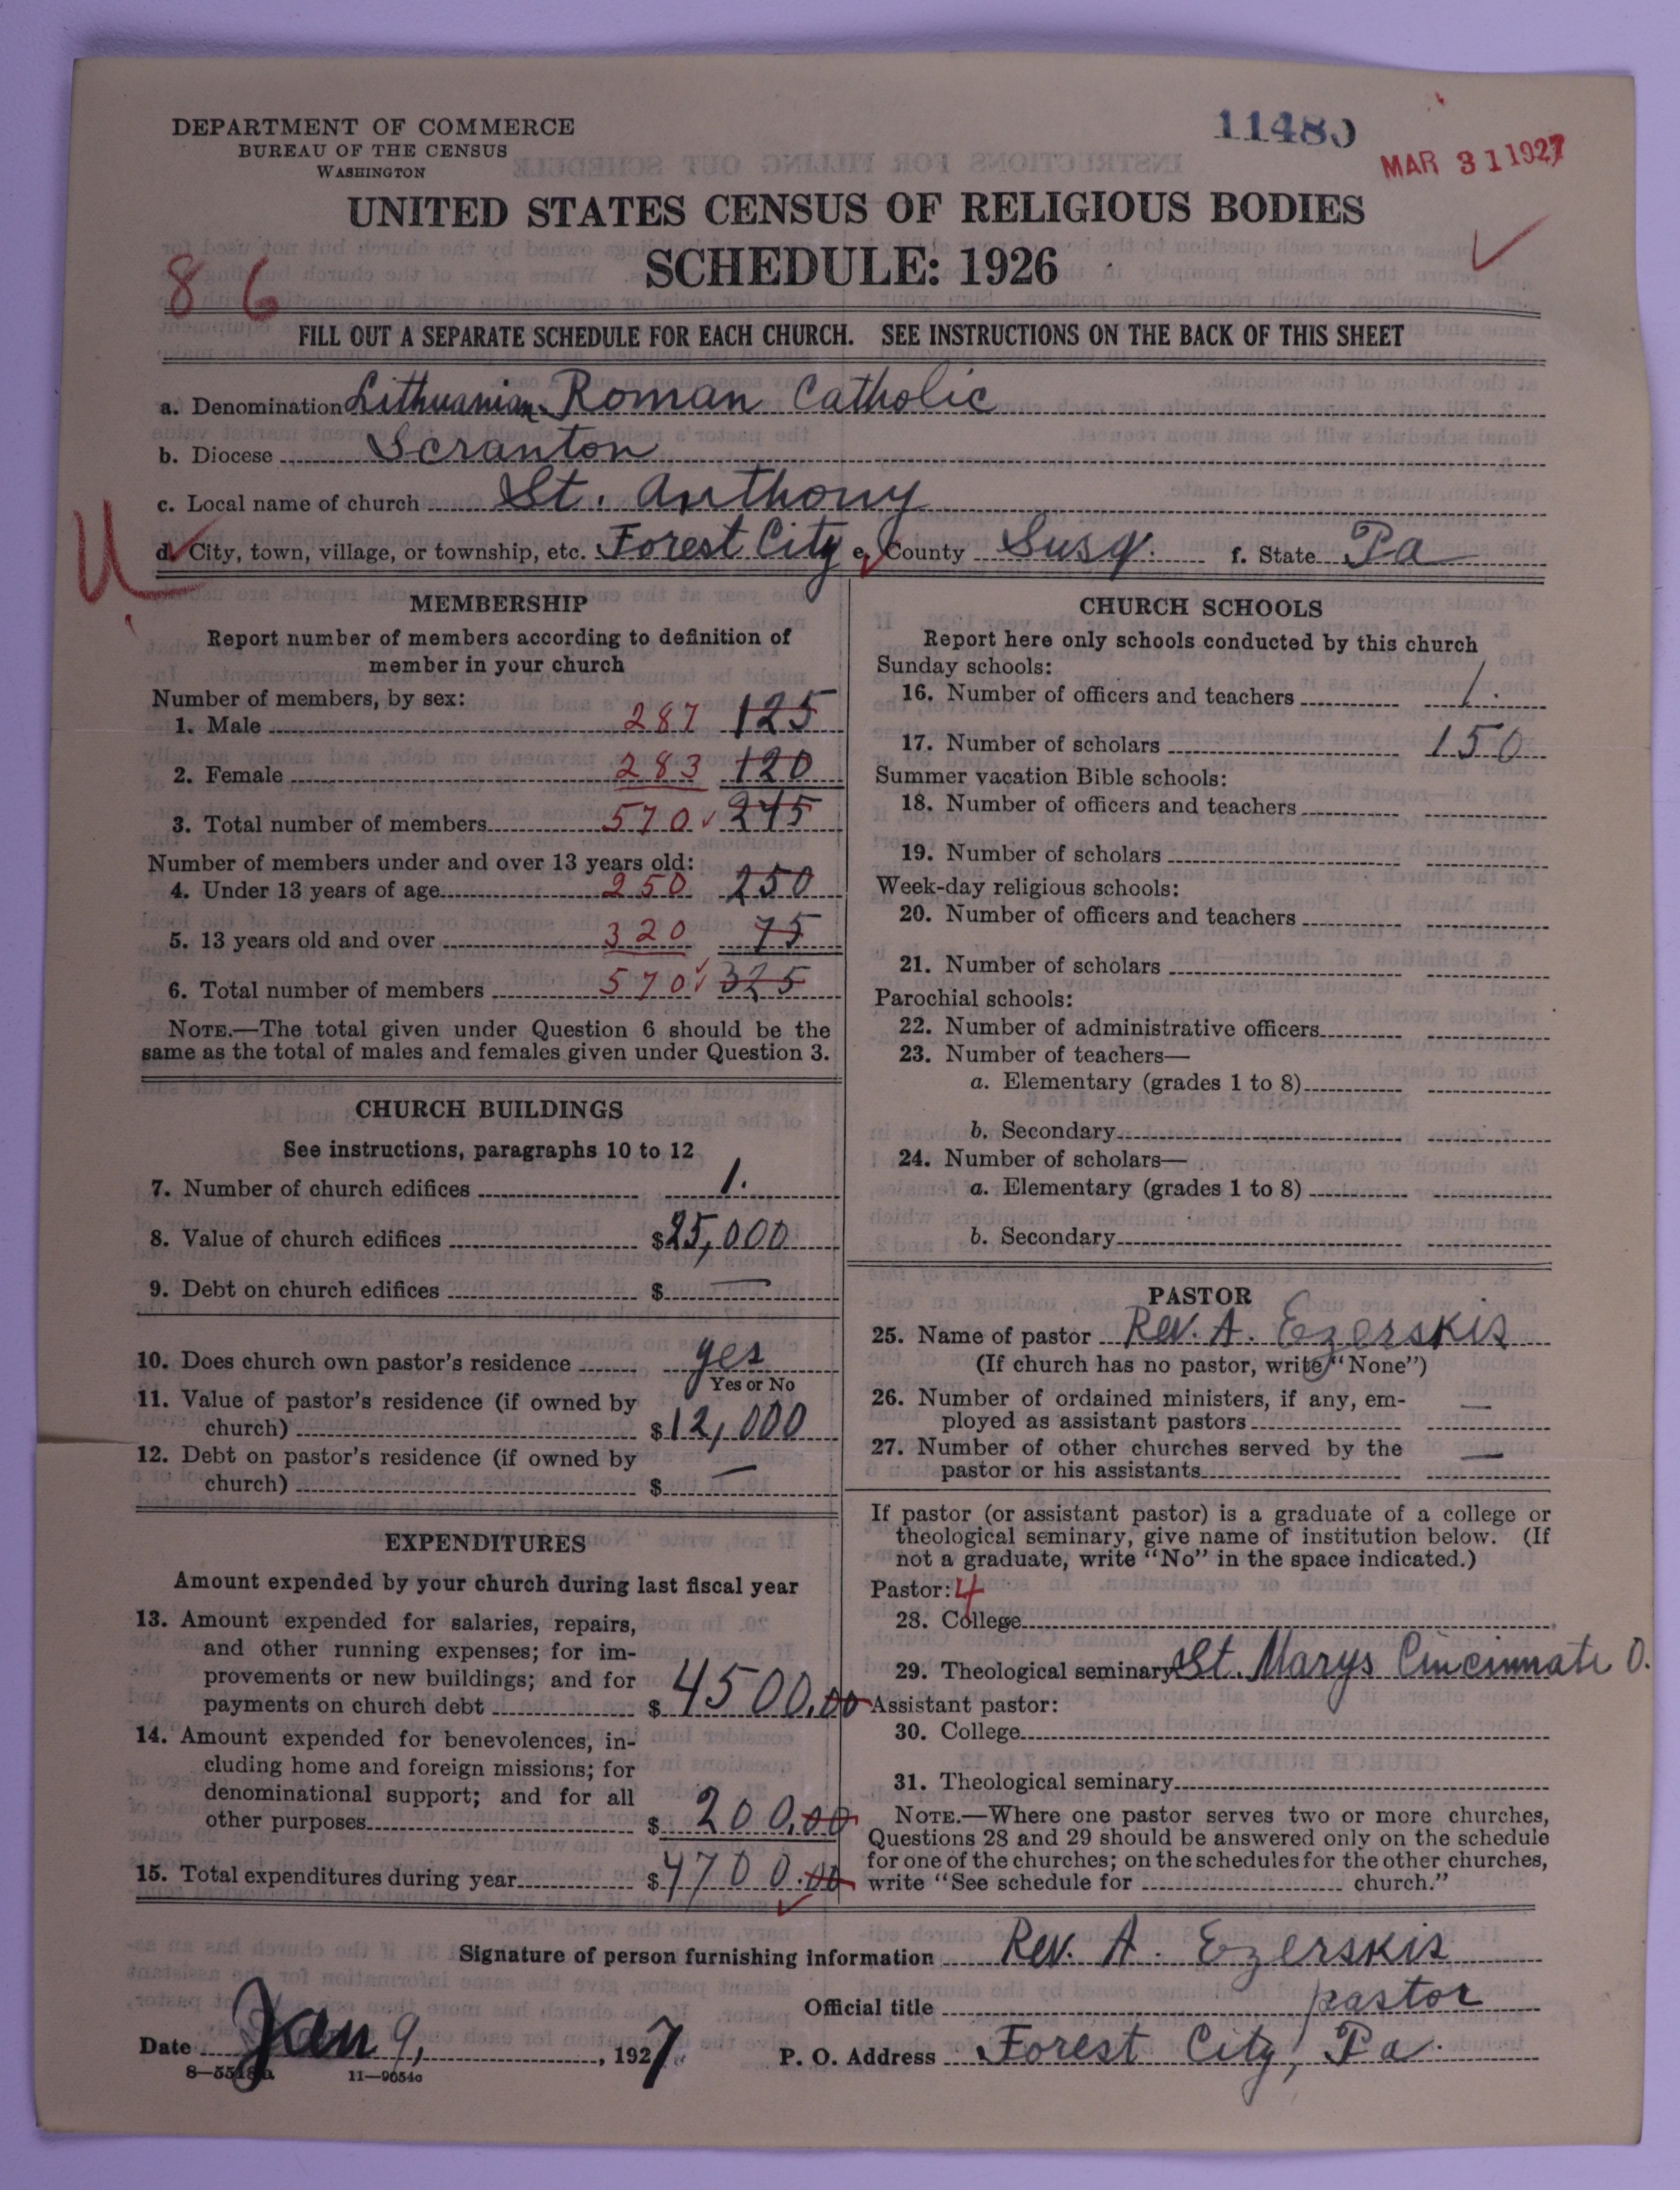 DEPARTMENT OF COMMERCE
BUREAU OF THE CENSUS
WASHINGTON
11480
MAR 31 1927
UNITED STATES CENSUS OF RELIGIOUS BODIES
SCHEDULE: 1926
8 6
FILL OUT A SEPARATE SCHEDULE FOR EACH CHURCH. SEE INSTRUCTIONS ON THE BACK OF THIS SHEET
a. Denomination Lithuanian Roman Catholic
b. Diocese Scranton
c. Local name of church St. Anthony
U
d. City, town, village, or township, etc. Forest City e. County Susq. f. State Pa
MEMBERSHIP
Report number of members according to definition of
member in your church
Number of members, by sex:
1. Male 287 125
2. Female 283 120
3. Total number of members 570 245
Number of members under and over 13 years old:
4. Under 13 years of age 250 250
5. 13 years old and over 320 75
6. Total number of members 570 325
NOTE.—The total given under Question 6 should be the
same as the total of males and females given under Question 3.
CHURCH BUILDINGS
See instructions, paragraphs 10 to 12
7. Number of church edifices 1.
8. Value of church edifices $25,000
9. Debt on church edifices $ —
10. Does church own pastor's residence yes
Yes or No
11. Value of pastor's residence (if owned by
church) $12,000
12. Debt on pastor's residence (if owned by
church) $ —
EXPENDITURES
Amount expended by your church during last fiscal year
13. Amount expended for salaries, repairs,
and other running expenses; for im-
provements or new buildings; and for
payments on church debt $4500.00
14. Amount expended for benevolences, in-
cluding home and foreign missions; for
denominational support; and for all
other purposes $200.00
15. Total expenditures during year $4700.00
CHURCH SCHOOLS
Report here only schools conducted by this church
Sunday schools:
16. Number of officers and teachers 1.
17. Number of scholars 150
Summer vacation Bible schools:
18. Number of officers and teachers
19. Number of scholars
Week-day religious schools:
20. Number of officers and teachers
21. Number of scholars
Parochial schools:
22. Number of administrative officers
23. Number of teachers—
a. Elementary (grades 1 to 8)
b. Secondary
24. Number of scholars—
a. Elementary (grades 1 to 8)
b. Secondary
PASTOR
25. Name of pastor Rev. A. Ezerskis
(If church has no pastor, write "None")
26. Number of ordained ministers, if any, em-
ployed as assistant pastors —
27. Number of other churches served by the
pastor or his assistants —
If pastor (or assistant pastor) is a graduate of a college or
theological seminary, give name of institution below. (If
not a graduate, write "No" in the space indicated.)
Pastor: 4
28. College
29. Theological seminary St. Marys Cincinnati O.
Assistant pastor:
30. College
31. Theological seminary
NOTE.—Where one pastor serves two or more churches,
Questions 28 and 29 should be answered only on the schedule
for one of the churches; on the schedules for the other churches,
write "See schedule for church."
Signature of person furnishing information Rev. A. Ezerskis
Official title pastor
Date Jan 9, 1927
P. O. Address Forest City, Pa.
11—9054a